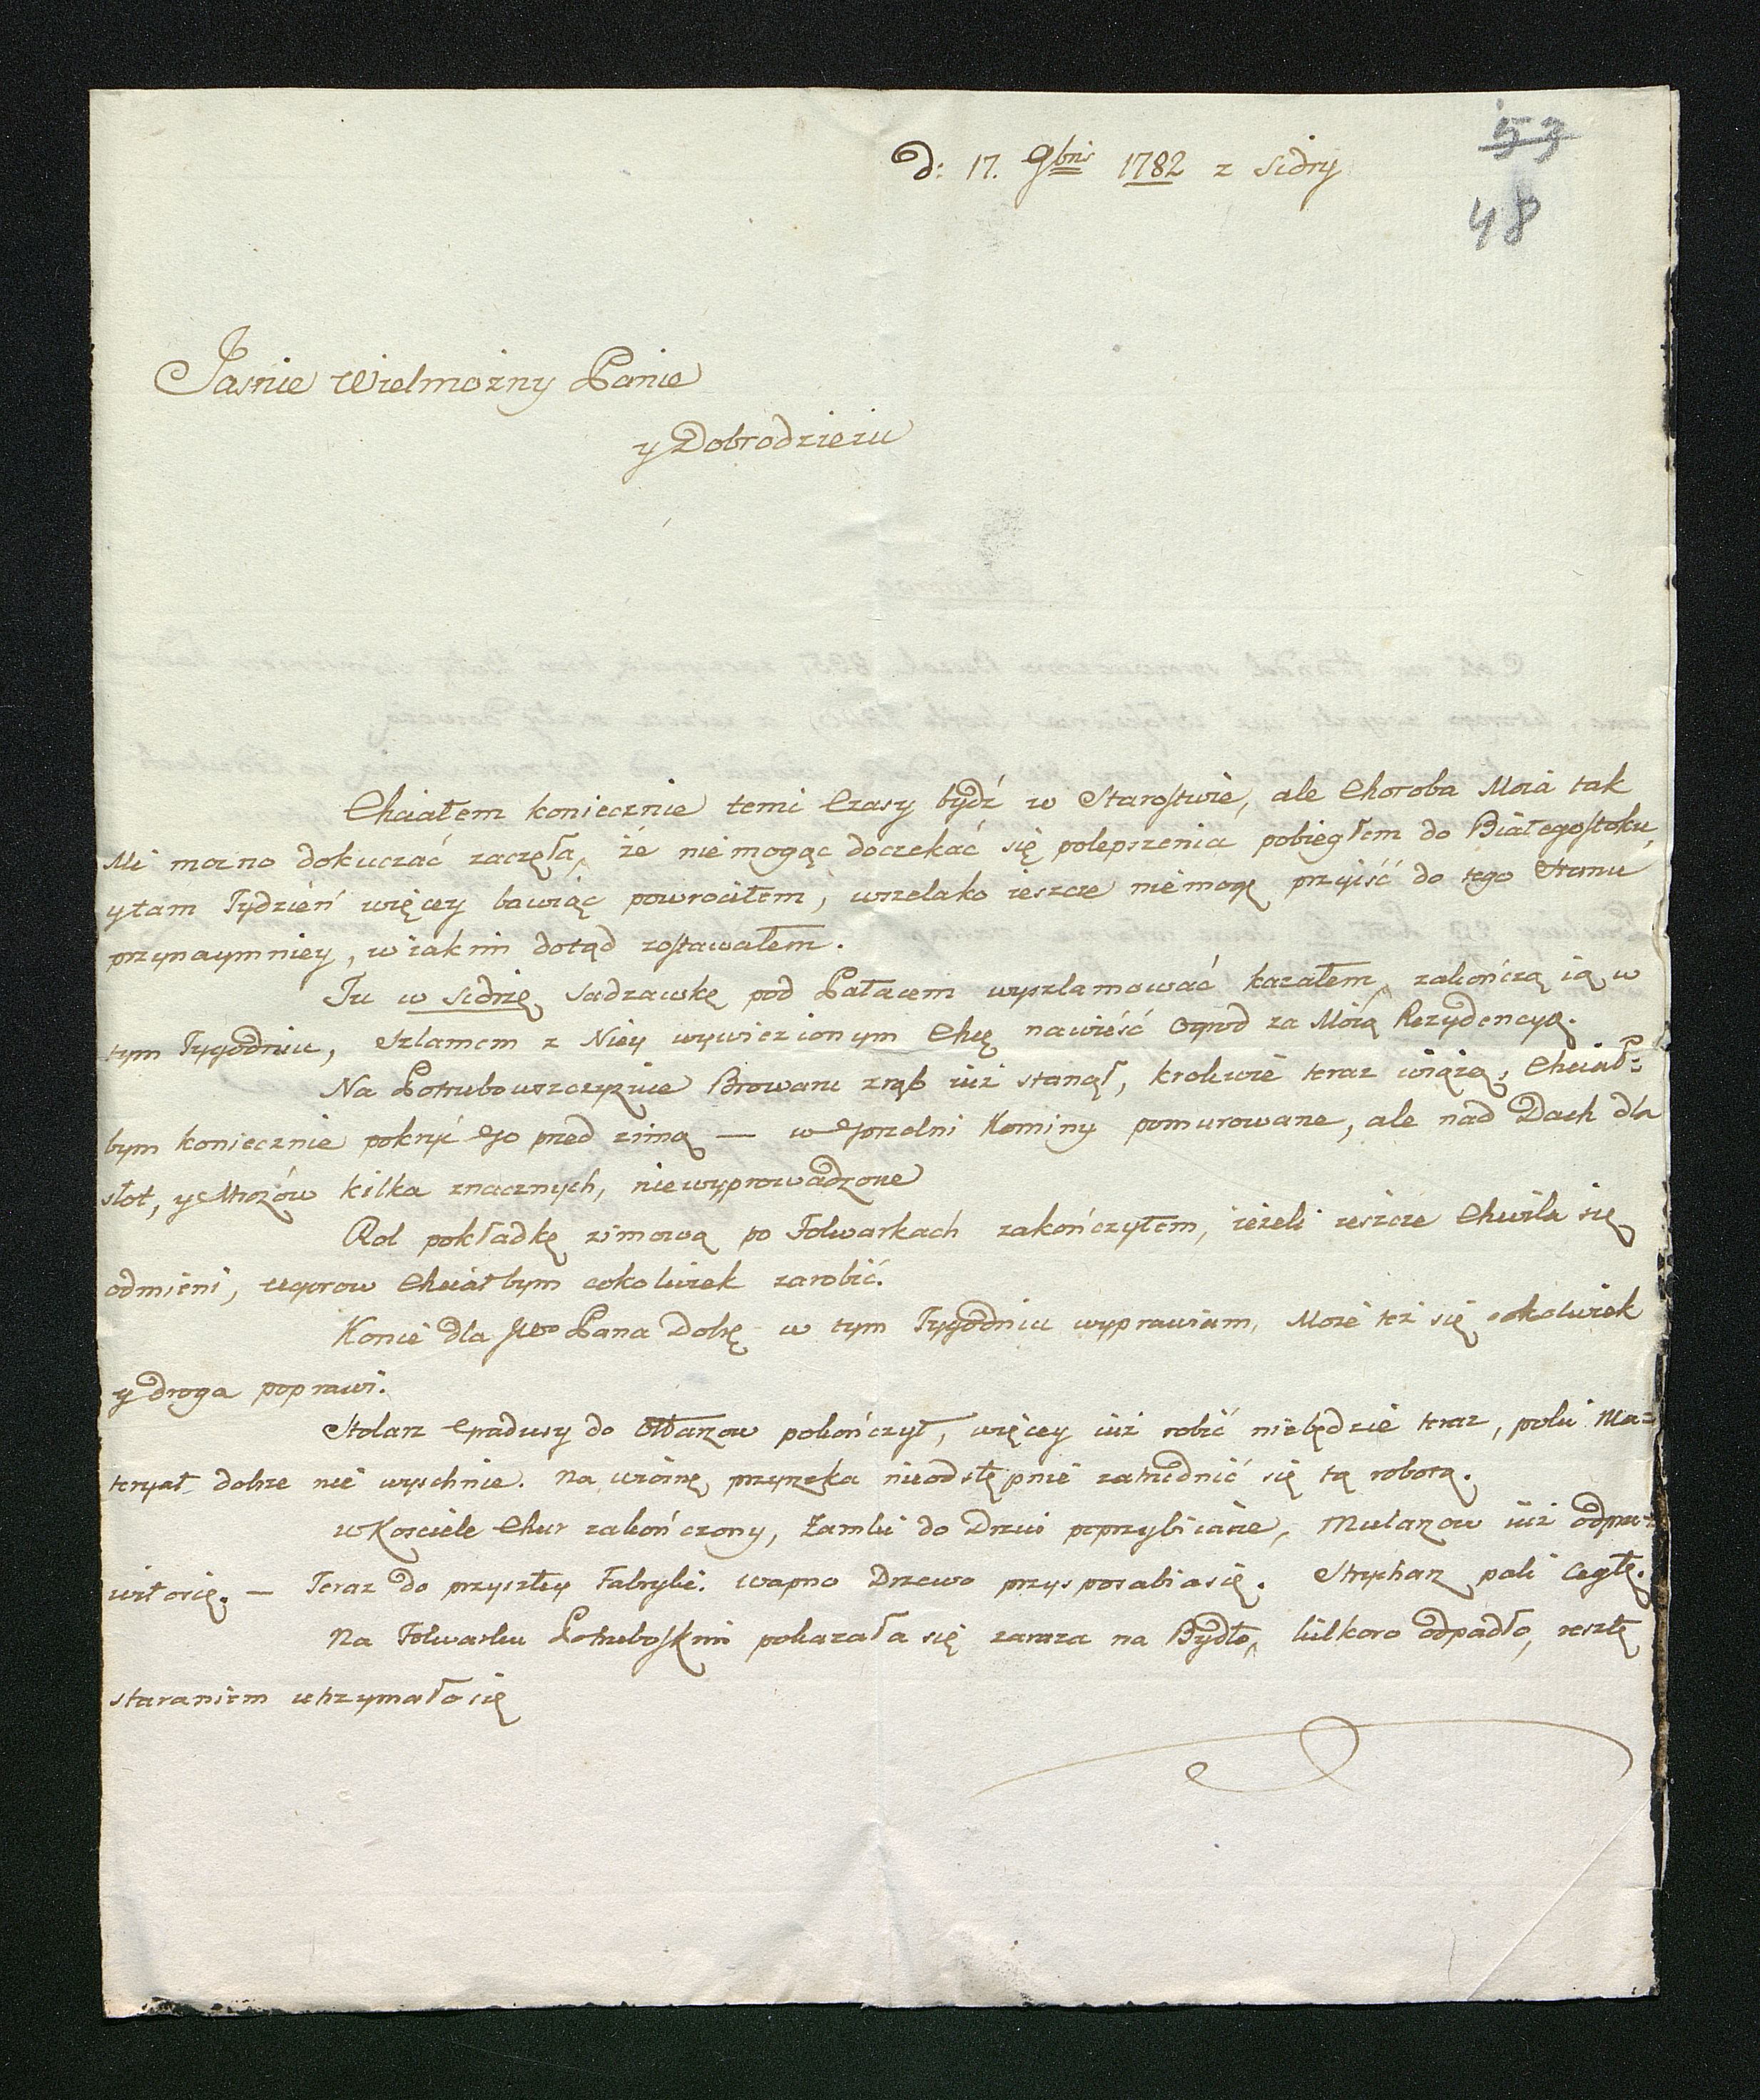 d: 17. 9bris 1782 z Sidry
53
48
Jasnie Wielmożny Panie
y Dobrodzieiu
Chciałem koniecznie temi Czasy bydź w Starostwie, ale Choroba Moia tak
Mi mozno dokuczać zaczęła, że nie mogąc doczekać się polepszenia pobiegłem do Białegostoku,
y tam Tydzień więcey bawiąc powrociłem, wszelako ieszcze nie mogę przyiść do tego Stanu
przynaymniey, w iakim dotąd zostawałem.
Tu w Sidrze, Sadzawkę pod Pałacem wyszlamować kazałem, zakończą ią w
tym Tygodniu, Szlamem z Niey wywiezionym Chcę nawieść Ogrod za Moią Rezydencyą.
Na Potrubowszczyznie Browaru zrąb iuż stanął, krokwie teraz wiążą, Chciał=
bym koniecznie pokryć Go przed zimą — w Gorzelni Kominy pomurowane, ale nad Dach dla
słot, y Mrozów kilka znacznych, nie wyprowadzone
Rol pokładkę zimową po Folwarkach zakończyłem, ieżeli ieszcze Chwila się
odmieni, ugorow Chciałbym cokolwiek zarobić.
Konie dla JWo Pana Dobę w tym Tygodniu wyprawiam, Może też się cokolwiek
y droga poprawi.
Stolarz Gradusy do Ołtarzow pokończył, więcey iuż robić niebędzie teraz, poki Ma=
teryał dobrze nie wyschnie. na wiosnę przyrzeka nieodstępnie zatrudnić się tą robotą.
w Kosciele Chur zakończony, Zamki do Drzwi poprzybiciane, Mularzow iuż odpra=
wiłosię. — Teraz do przyszłey Fabryki. wapno Drzewo przysposabia się. Strycharz pali Cegłę.
Na Folwarku Potruboskim pokazała się zaraza na Bydło, kilkoro odpadło, resztę
staraniem utrzymało się